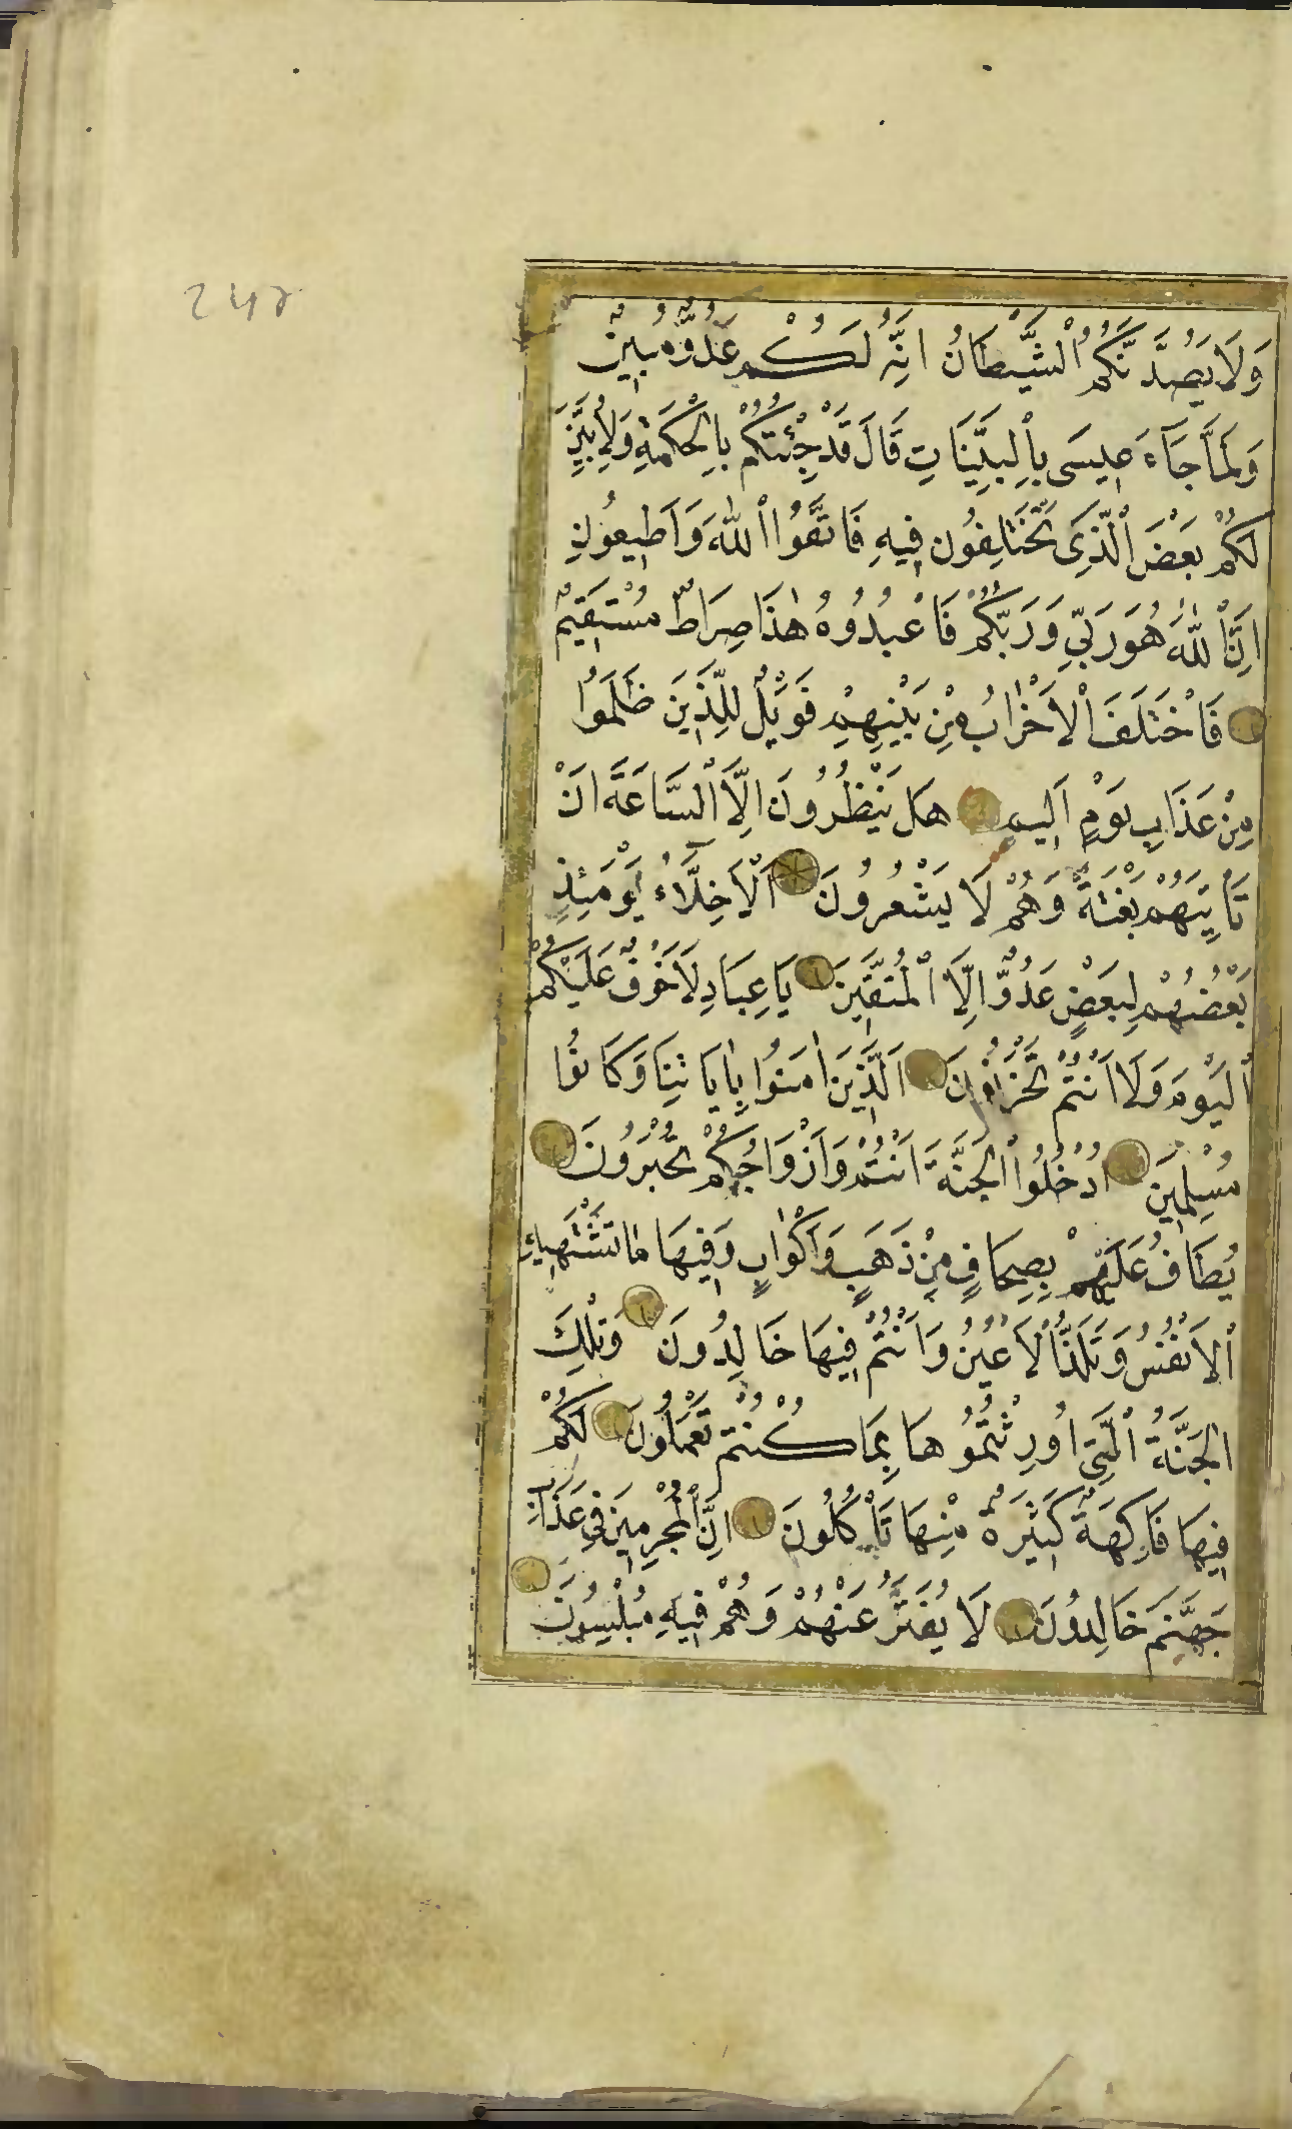 242
وَلَا يَصُدَّنَّكُمُ الشَّيْطَانُ اِنَّهُ لَكُمْ عَدُوٌّ مُبِينٌ
وَلَمَّا جَآءَ عِيسَى بِالْبَيِّنَاتِ قَالَ قَدْ جِئْتُكُمْ بِالْحِكْمَةِ وَلِاُبَيِّنَ
لَكُمْ بَعْضَ الَّذِى تَخْتَلِفُونَ فِيهِ فَاتَّقُوا اللّٰهَ وَاَطِيعُونِ
اِنَّ اللّٰهَ هُوَ رَبِّى وَرَبُّكُمْ فَاعْبُدُوهُ هٰذَا صِرَاطٌ مُسْتَقِيمٌ
فَاخْتَلَفَ الْاَحْزَابُ مِنْ بَيْنِهِمْ فَوَيْلٌ لِلَّذِينَ ظَلَمُوا
مِنْ عَذَابِ يَوْمٍ اَلِيمٍ هَلْ يَنْظُرُونَ اِلَّا السَّاعَةَ اَنْ
تَاْتِيَهُمْ بَغْتَةً وَهُمْ لَا يَشْعُرُونَ اَلْاَخِلَّاءُ يَوْمَئِذٍ
بَعْضُهُمْ لِبَعْضٍ عَدُوٌّ اِلَّا الْمُتَّقِينَ يَا عِبَادِ لَا خَوْفٌ عَلَيْكُمُ
الْيَوْمَ وَلَا اَنْتُمْ تَحْزَنُونَ اَلَّذِينَ اٰمَنُوا بِاٰيَاتِنَا وَكَانُوا
مُسْلِمِينَ اُدْخُلُوا الْجَنَّةَ اَنْتُمْ وَاَزْوَاجُكُمْ تُحْبَرُونَ
يُطَافُ عَلَيْهِمْ بِصِحَافٍ مِنْ ذَهَبٍ وَاَكْوَابٍ وَفِيهَا مَا تَشْتَهِيهِ
الْاَنْفُسُ وَتَلَذُّ الْاَعْيُنُ وَاَنْتُمْ فِيهَا خَالِدُونَ وَتِلْكَ
الْجَنَّةُ الَّتِى اُورِثْتُمُوهَا بِمَا كُنْتُمْ تَعْمَلُونَ لَكُمْ
فِيهَا فَاكِهَةٌ كَثِيرَةٌ مِنْهَا تَاْكُلُونَ اِنَّ الْمُجْرِمِينَ فِى عَذَابِ
جَهَنَّمَ خَالِدُونَ لَا يُفَتَّرُ عَنْهُمْ وَهُمْ فِيهِ مُبْلِسُونَ